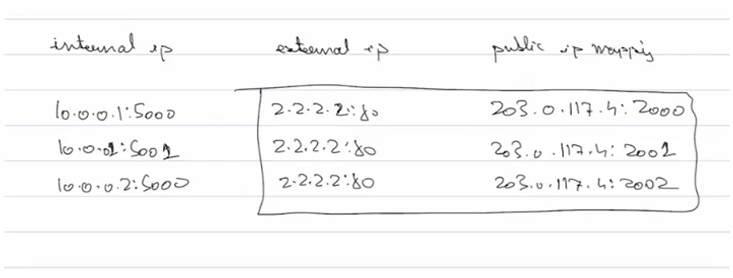 internal ip external ip public ip mapping
10.0.0.1:5000 2.2.2.2:80 203.0.117.4:2000
10.0.01:5001 2.2.2.2:80 203.0.117.4:2001
10.0.0.2:5000 2.2.2.2:80 203.0.117.4:2002